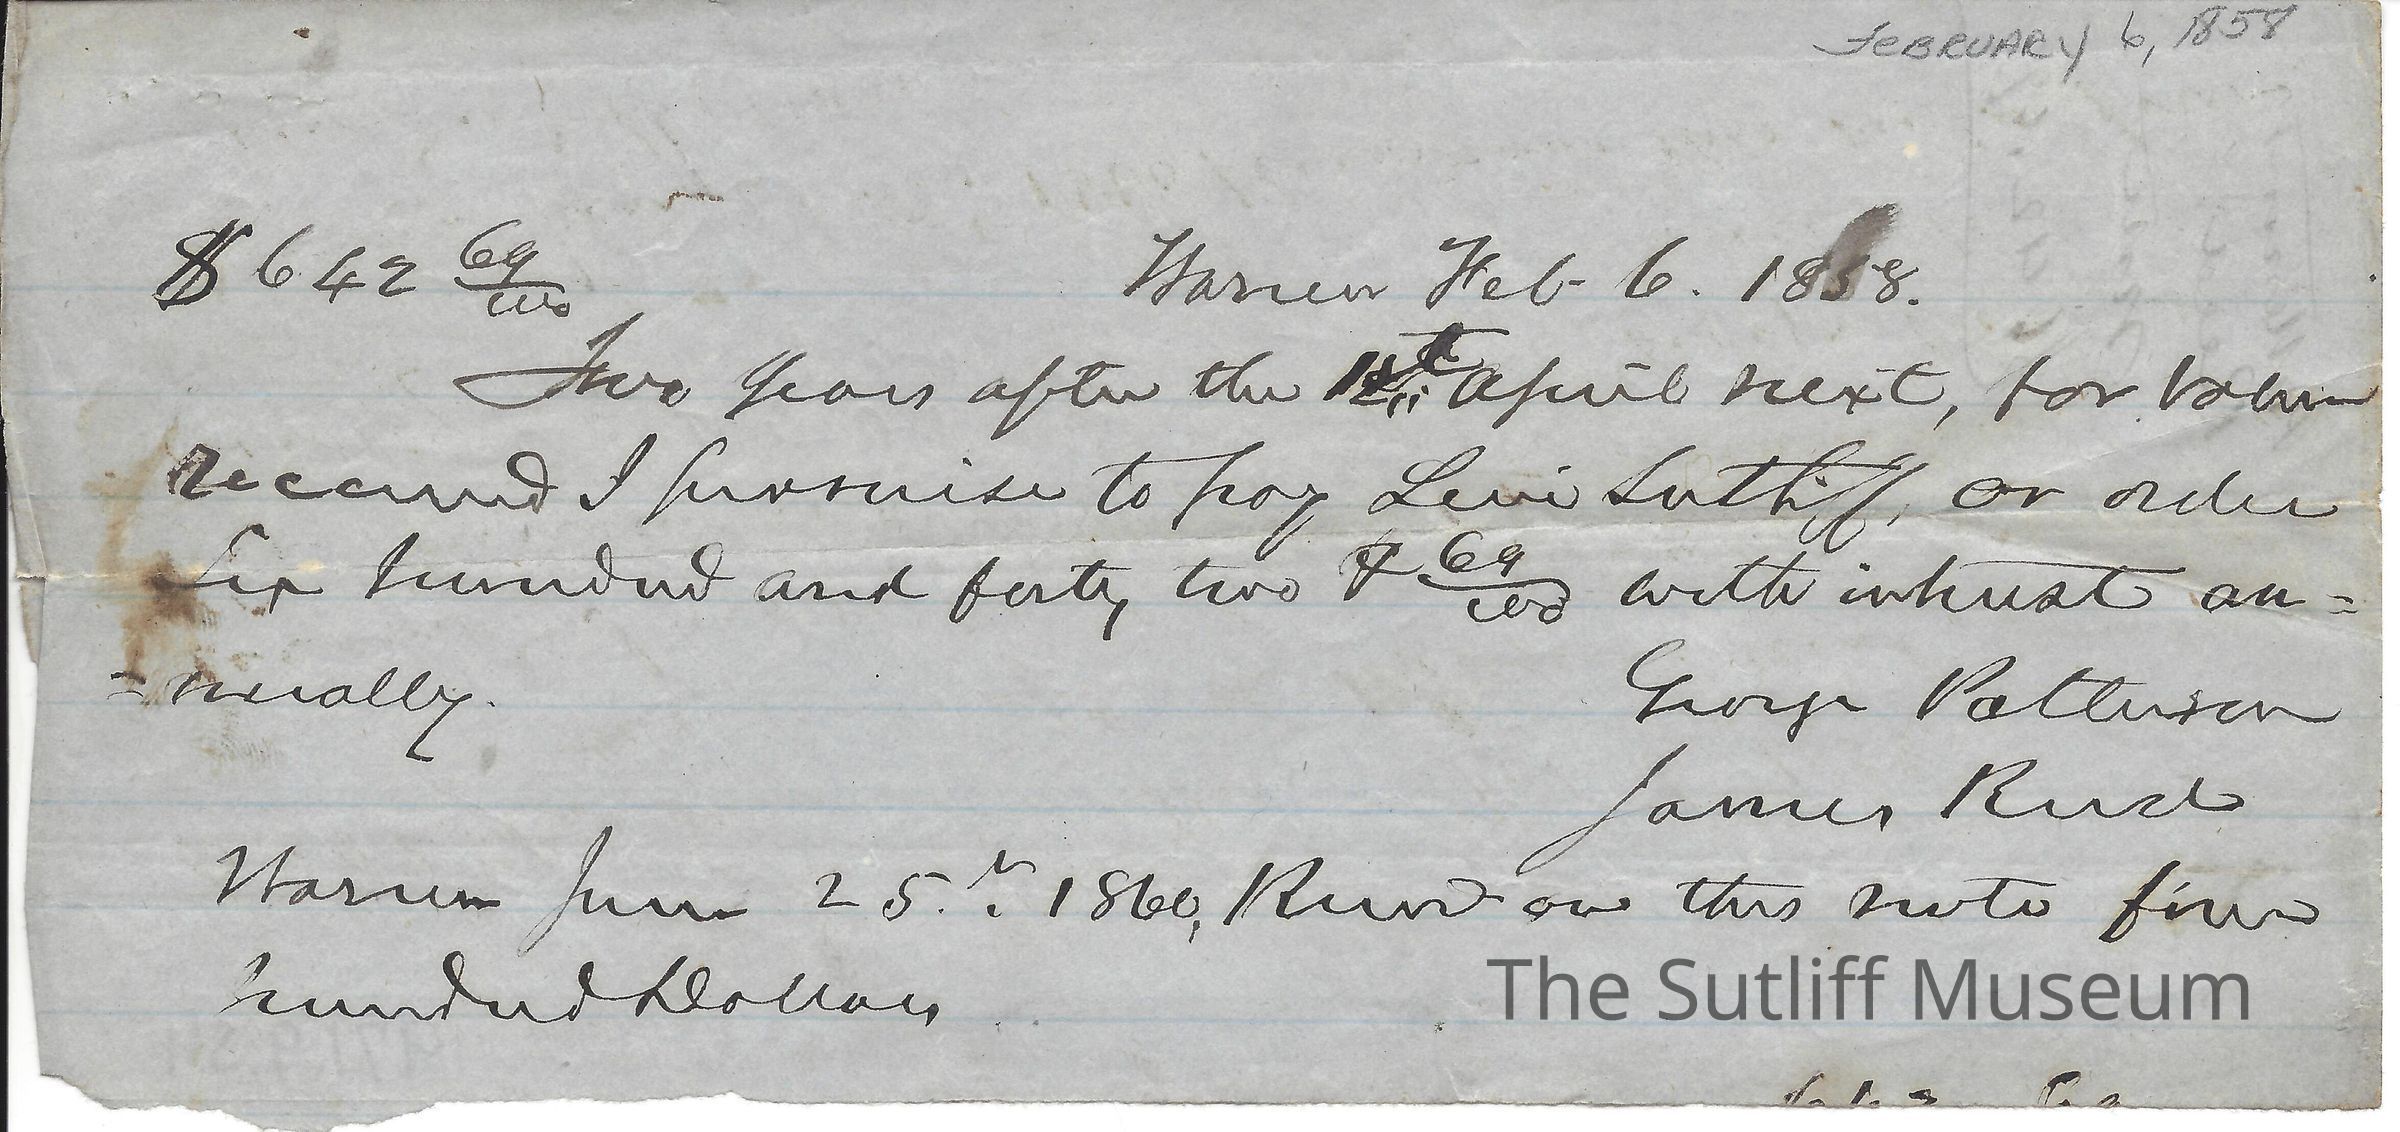 FEBRUARY 6, 1858
$642 69/100 Warren Feb. 6. 1858.
Two years after the 1st April next, for value
received I promise to pay Levi Sutliff, or order
Six hundred and forty two & 69/100 with interest an=
=nually.
George Patterson
James Reed
Warren June 25.th 1860, Recvd on this note five
hundred Dollars
The Sutliff Museum